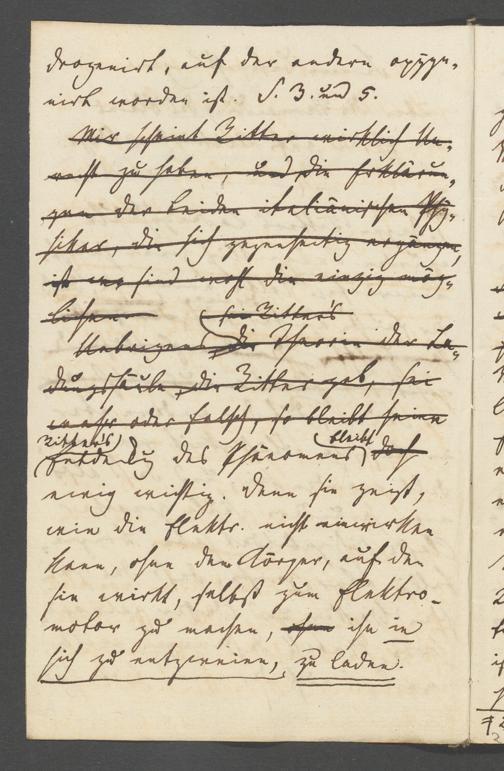 drogenirt, auf der andern oxyge-
nirt worden ist. S. 3. und 5.
Mir scheint Ritter wirklich Un-
recht zu haben, und die Erklärun-
gen der beiden italiänischen Phy-
siker, die sich gegenseitig ergänzen,
ist sind wohl die einzig mög-
lichen
sei Ritter's
Uebrigens die Theorie der La-
dungssäule, die Ritter gab, sei
wahr oder falsch, so bleibt seine
Ritter's bleibt
Entdeckung des Phänomens doch
ewig wichtig. denn sie zeigt,
wie die Elektr. nicht einwirken
kann, ohne den Körper, auf den
sie wirkt, selbst zum Elektro-
motor zu machen, ohne ihn in
sich zu entzweien, zu laden.